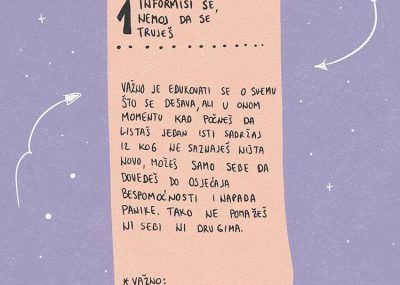 1 INFORMIŠI SE,
NEMOJ DA SE
TRUJEŠ
VAŽNO JE EDUKOVATI SE O SVEMU
ŠTO SE DEŠAVA, ALI U ONOM
MOMENTU KAD POČNEŠ DA
LISTAŠ JEDAN ISTI SADRŽAJ
IZ KOG NE SAZNAJEŠ NIŠTA
NOVO, MOŽEŠ SAMO SEBE DA
DOVEDEŠ DO OSJEĆAJA
BESPOMOĆNOSTI I NAPADA
PANIKE. TAKO NE POMAŽEŠ
NI SEBI NI DRUGIMA.
* VAŽNO: